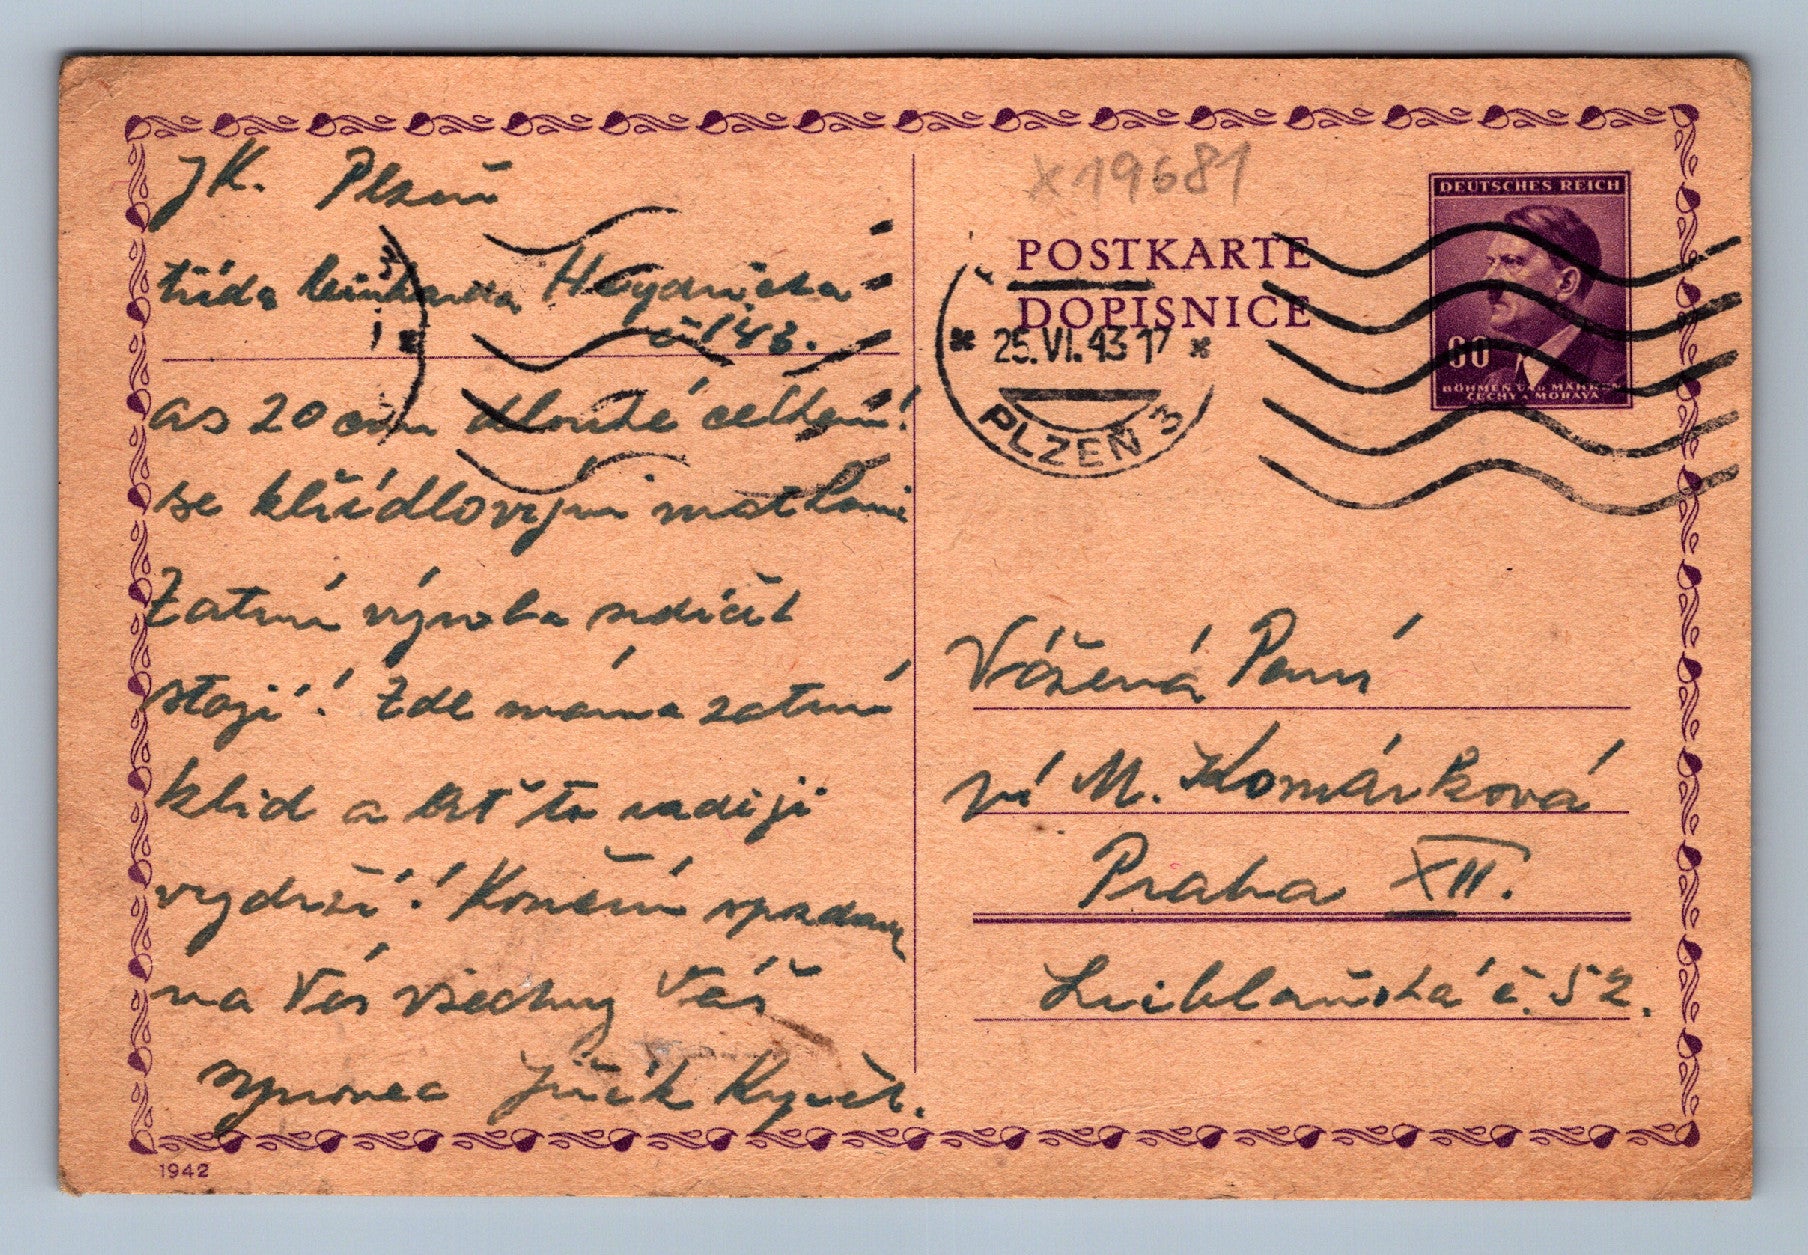 JK. Plzeň
třída Reinharda Heydricha
č 143.
as 20 cm dlouhé celkem!
se křídlovými matkami
Zatím výroba srdíček
stojí! Zde máme zatím
klid a ať to raději
vydrží! Končím vzpomínkou
na Vás všechny Váš
synovec Jiřík
x19681
POSTKARTE
DOPISNICE
DEUTSCHES REICH
60
BÖHMEN UND MÄHREN
ČECHY A MORAVA
25.VI.43 17
PLZEŇ 3
Vážená Paní
pí M. Komárková
Praha XII.
Lublaňská č. 52.
1942